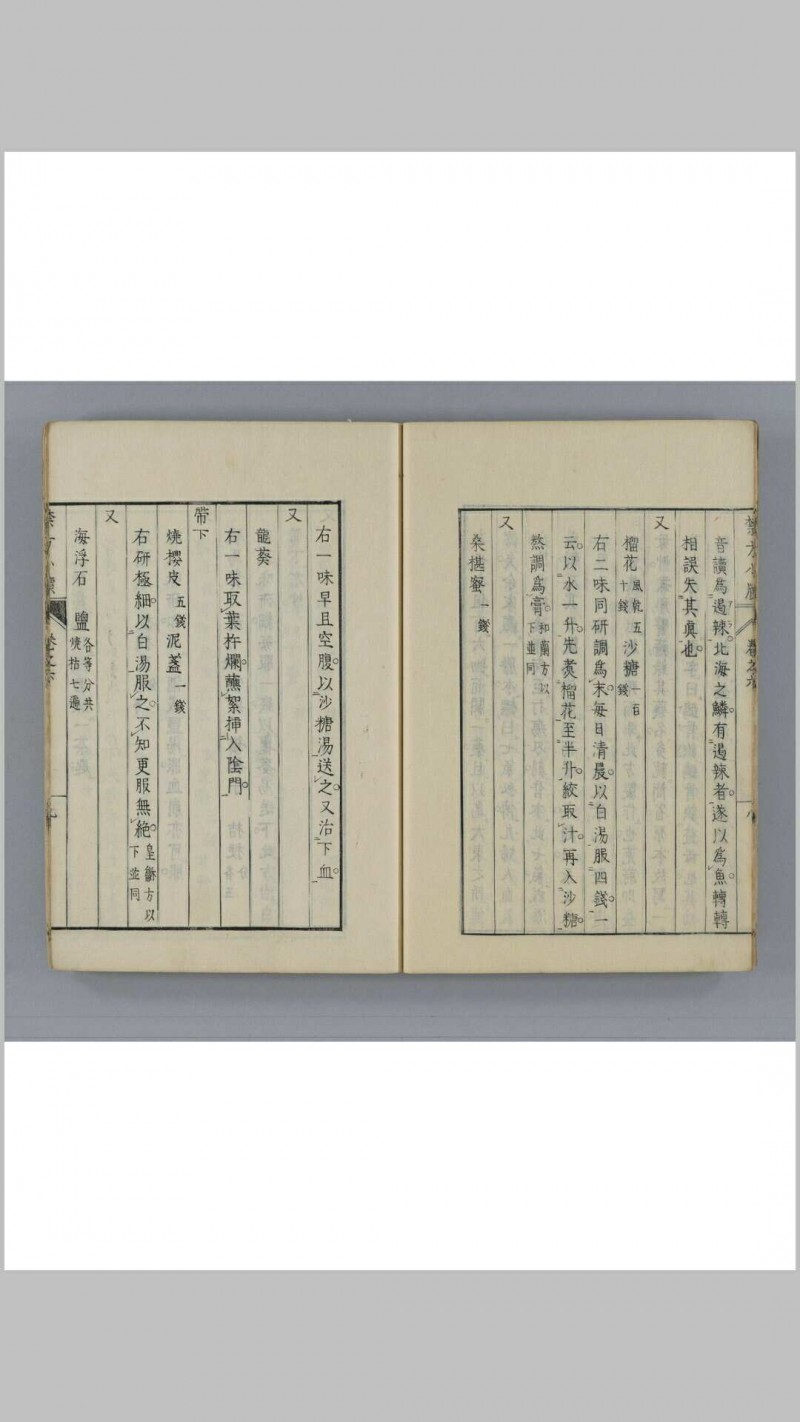 音讀爲遏辣北海之鱗有遏辣者遂以爲魚轉轉
相誤失其眞也
又
榴花 風乾五十錢 沙糖 一百錢
右二味同研調爲末每日清晨以白湯服四錢一
云以水一升先煑榴花至半升絞取汁再入沙糖
熬調爲膏 和蘭方以下並同
又
桑椹蜜 一錢
右一味早且空腹以沙糖湯送之又治下血
又
龍葵
右一味取葉杵爛蘸絮挿入陰門
帶下
燒櫻皮 五錢 泥蓋 一錢
右研極細以白湯服之不知更服無絶 皇鄰方以下並同
又
海浮石 鹽 各等分共燒拾七遍